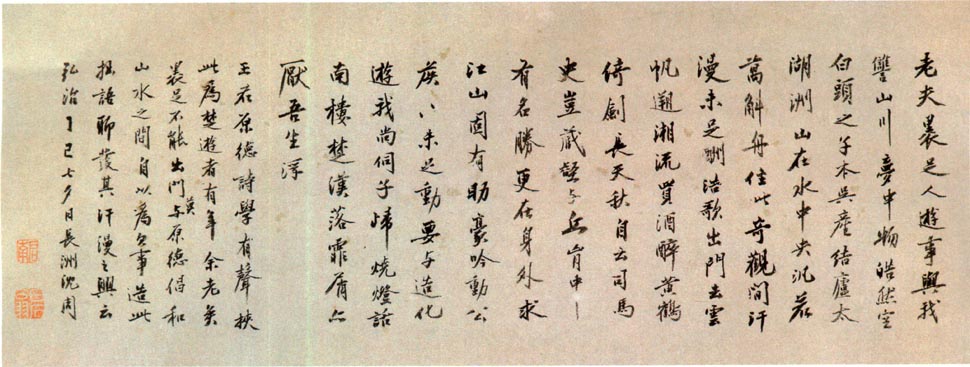 老夫裹足人遊事與我
讐山川夢中物皓然空
白頭之子本吳產結廬太
湖洲山在水中央汎若
萬斛舟住此奇觀間汗
漫未足酬浩歌出門去雲
帆遡湘流買酒醉黃鶴
倚劍長天秋自云司馬
史豈藏与丘中一
有名勝更在身外求
江山固有助豪吟動公
矦〻未足動要与造化
遊我尚伺子歸燒燈話
南樓楚漢落霏屑亦
厭吾生浮
王君原德詩學有聲挾
此為楚遊者有年余老矣
裹足不能出門莫与原德倡和
山水之間自以為欠事造此
拙語聊發其汗漫之興云
弘治丁巳七夕日長洲沈周